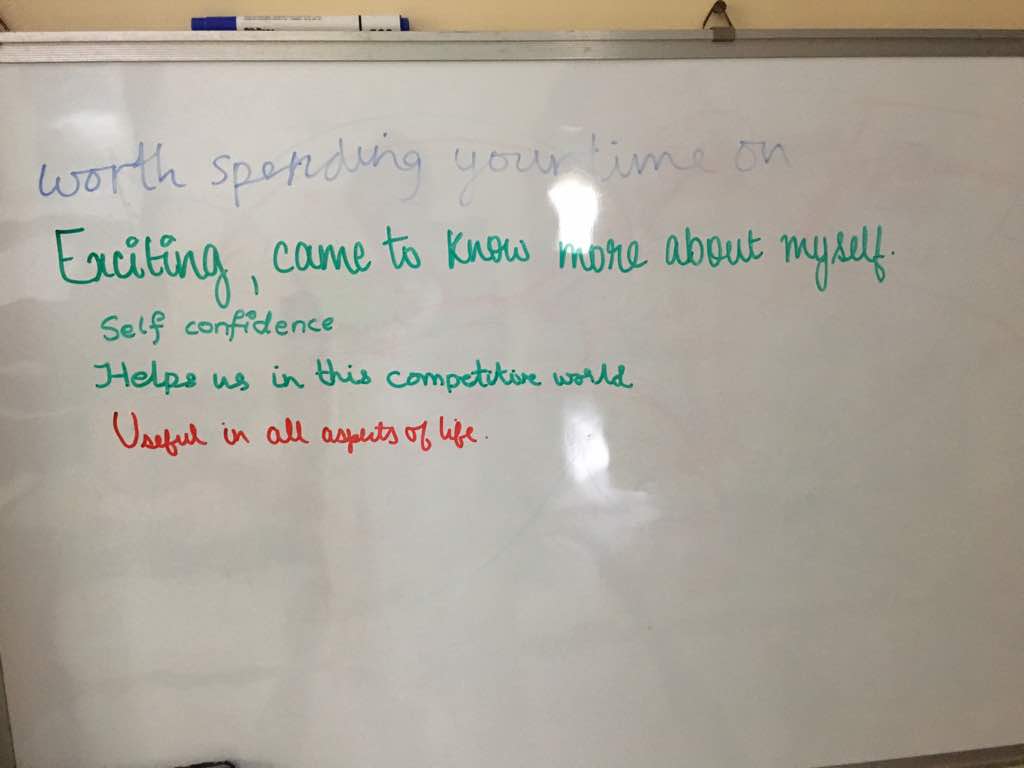 worth spending your time on
Exciting, came to know more about myself.
Self confidence
Helps us in this competitive world
Useful in all aspects of life.